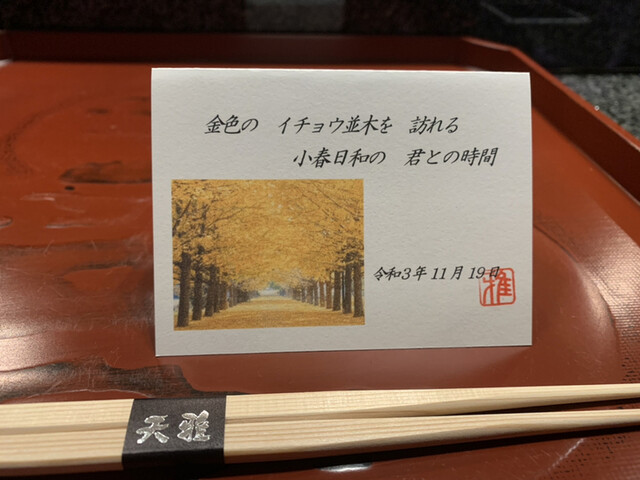 金色の　イチョウ並木を　訪れる
小春日和の　君との時間
令和3年11月19日
雅
天雅